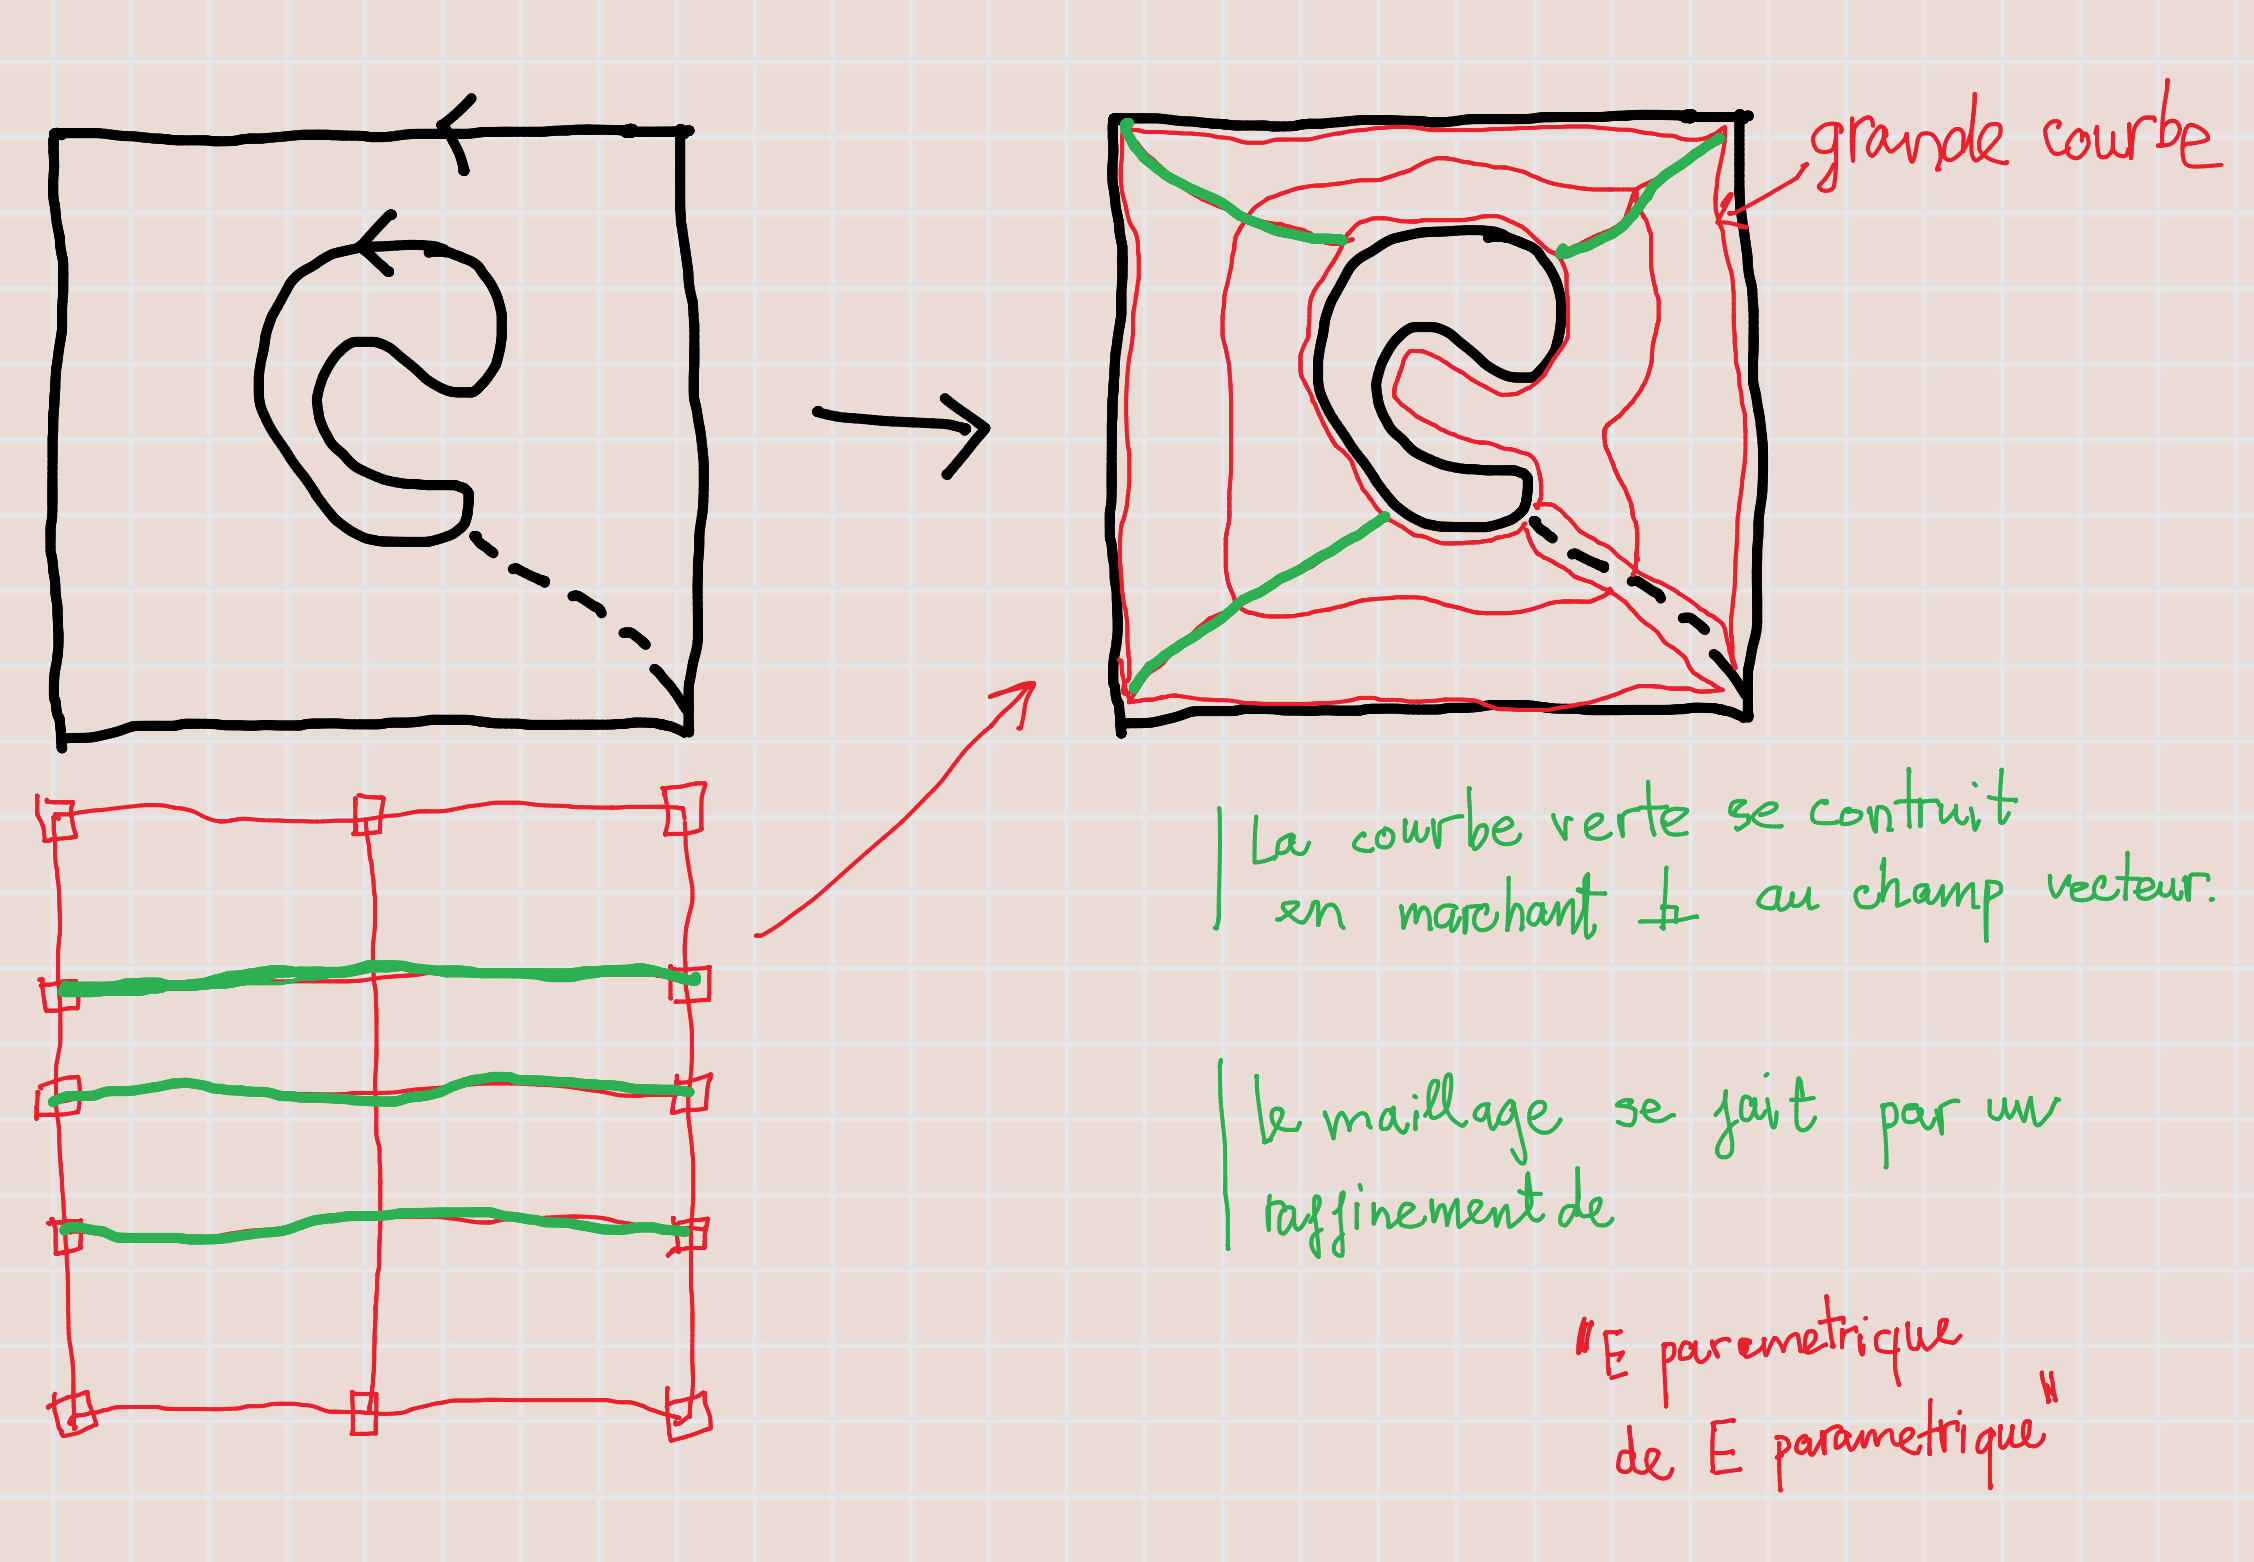 grande courbe
La courbe verte se contruit
en marchant ⊥ au champ vecteur.
Le maillage se fait par un
raffinement de
"E parametrique
de E parametrique"